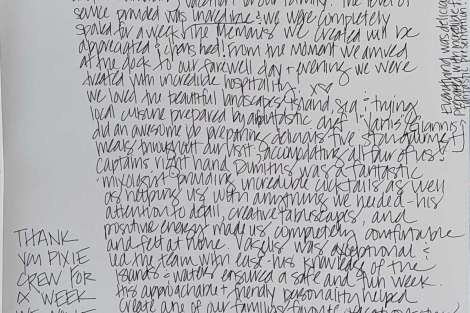 vacation for our family. The level of
service provided was incredible & we were completely
spoiled for a week. The memories we created will be
appreciated & cherished! From the moment we arrived
at the dock to our farewell day & evening we were
treated with incredible hospitality.
we loved the beautiful landscapes, island, sea & trying
local cuisine prepared by a fantastic chef. Yannis (Giannis)
did an awesome job preparing delicious five star gourmet
meals throughout our visit, accomodating all four of us!
Captains right hand Dimitris was a fantastic
mixologist providing incredible cocktails as well
as helping us with anything we needed - his
attention to detail, creative tablescapes, and
positive energy made us completely comfortable
and felt at home. Vasilis was exceptional &
lead the team with ease - his knowledge of the
islands & waters ensured a safe and fun week.
His approachable & friendly personality helped
create one of our families favorite vacations
THANK
you PIXIE
CREW FOR
A WEEK
Everything was delicious
prepared with incredible